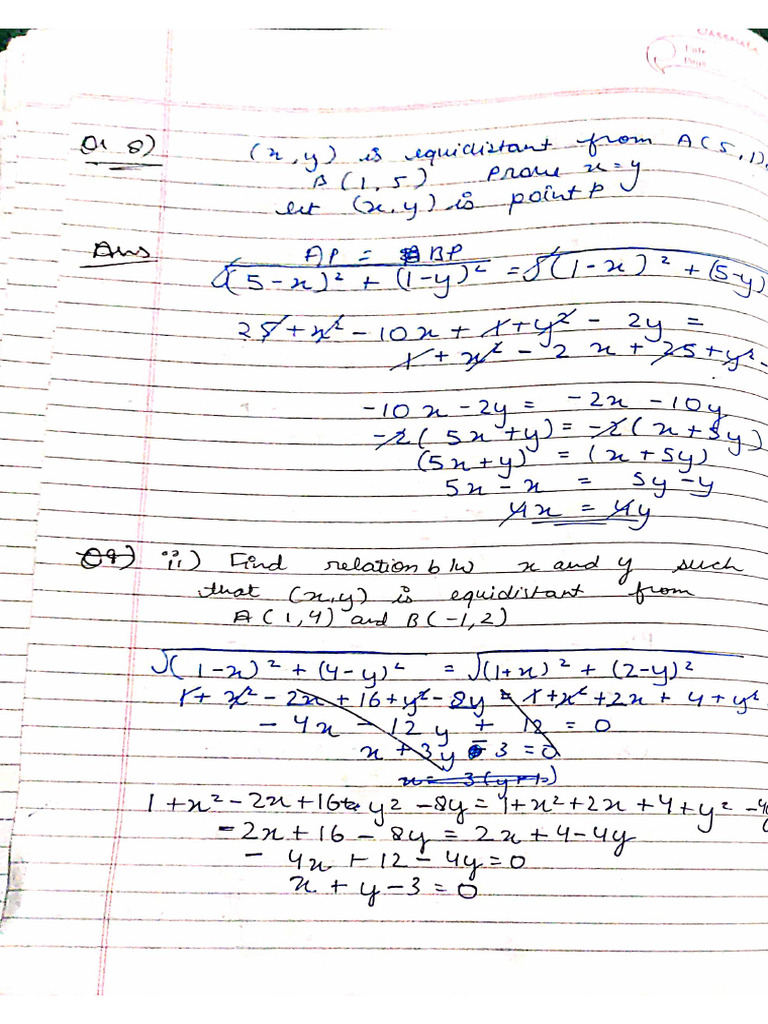 CLASSMATE
Date
Page
Q1 8) (x,y) is equidistant from A(5,1),
B(1,5) prove x=y
let (x,y) is point P
Ans AP = BP
√(5-x)² + (1-y)² = √(1-x)² + (5-y)
25+x²-10x+1+y²-2y =
1+x²-2x+25+y²-
-10x-2y = -2x-10y
-2(5x+y) = -2(x+5y)
(5x+y) = (x+5y)
5x-x = 5y-y
4x = 4y
Q9) ii) Find relation b/w x and y such
that (x,y) is equidistant from
A(1,4) and B(-1,2)
√(1-x)² + (4-y)² = √(1+x)² + (2-y)²
1+x²-2x+16+y²-8y = 1+x²+2x+4+y²
-4x-12y+12=0
x+3y-3=0
1+x²-2x+16+y²-8y=1+x²+2x+4+y²-4y
-2x+16-8y=2x+4-4y
-4x+12-4y=0
x+y-3=0